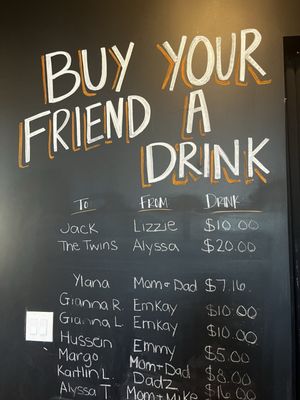 BUY YOUR
FRIEND A
DRINK
TO FROM DRINK
Jack Lizzie $10.00
The Twins Alyssa $20.00
Ylana Mom & Dad $7.16
Gianna R. EmKay $10.00
Gianna L. EmKay $10.00
Hussein Emmy $5.00
Margo Mom & Dad $8.00
Kaitlin L. Dadz
Alyssa T Mom & Mike